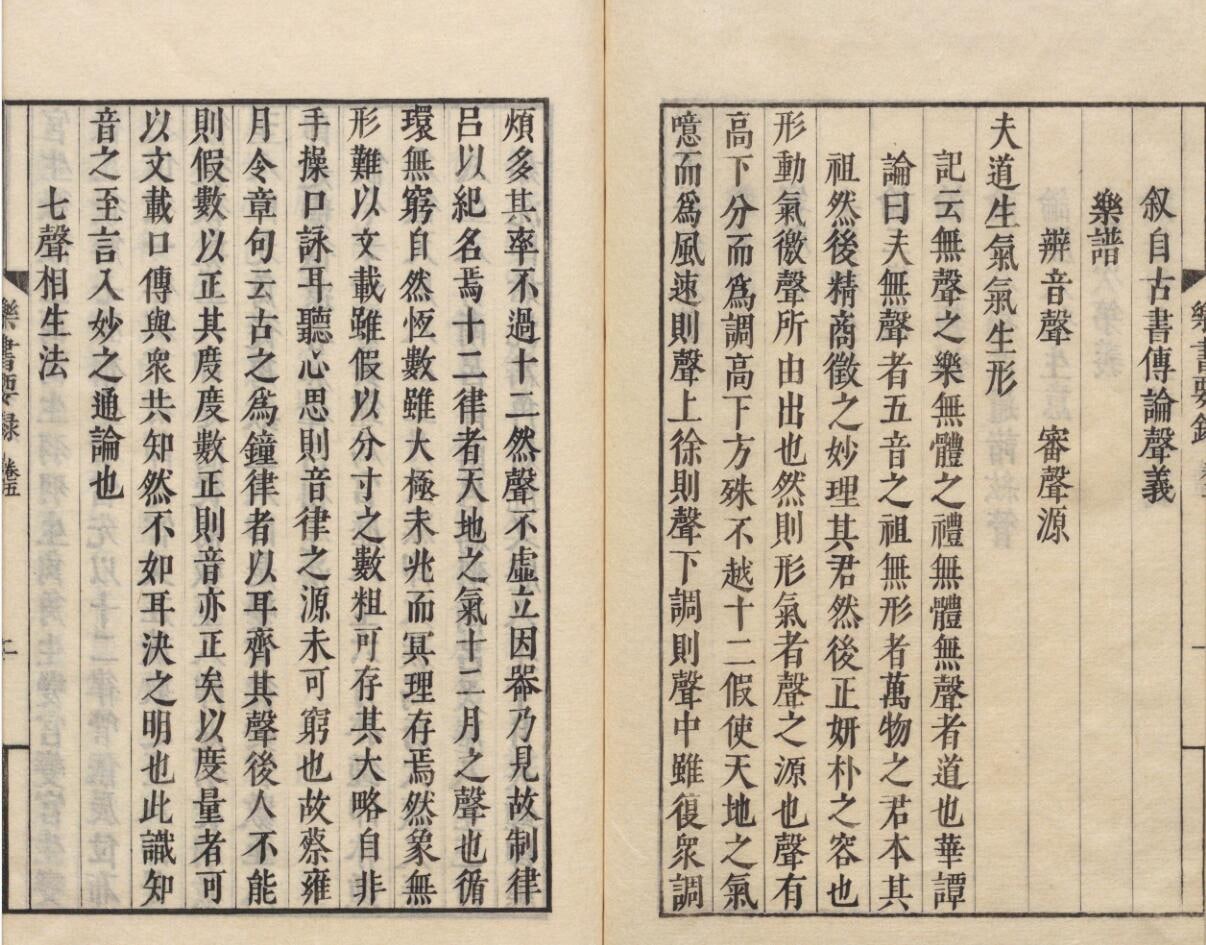 叙自古書傳論聲義
樂譜
辨音聲　審聲源
夫道生氣氣生形
記云無聲之樂無體之禮無體無聲者道也華譚
論曰夫無聲者五音之祖無形者萬物之君本其
祖然後精商徵之妙理其君然後正妍朴之容也
形動氣徹聲所由出也然則形氣者聲之源也聲有
高下分而爲調高下方殊不越十二假使天地之氣
噫而爲風速則聲上徐則聲下調則聲中雖復衆調
煩多其率不過十二然聲不虛立因器乃見故制律
呂以紀名焉十二律者天地之氣十二月之聲也循
環無窮自然恆數雖大極未兆而冥理存焉然象無
形難以文載雖假以分寸之數粗可存其大略自非
手操口詠耳聽心思則音律之源未可窮也故蔡雍
月令章句云古之爲鐘律者以耳齊其聲後人不能
則假數以正其度度數正則音亦正矣以度量者可
以文載口傳與衆共知然不如耳決之明也此識知
音之至言入妙之通論也
七聲相生法
樂書要録　卷五　二